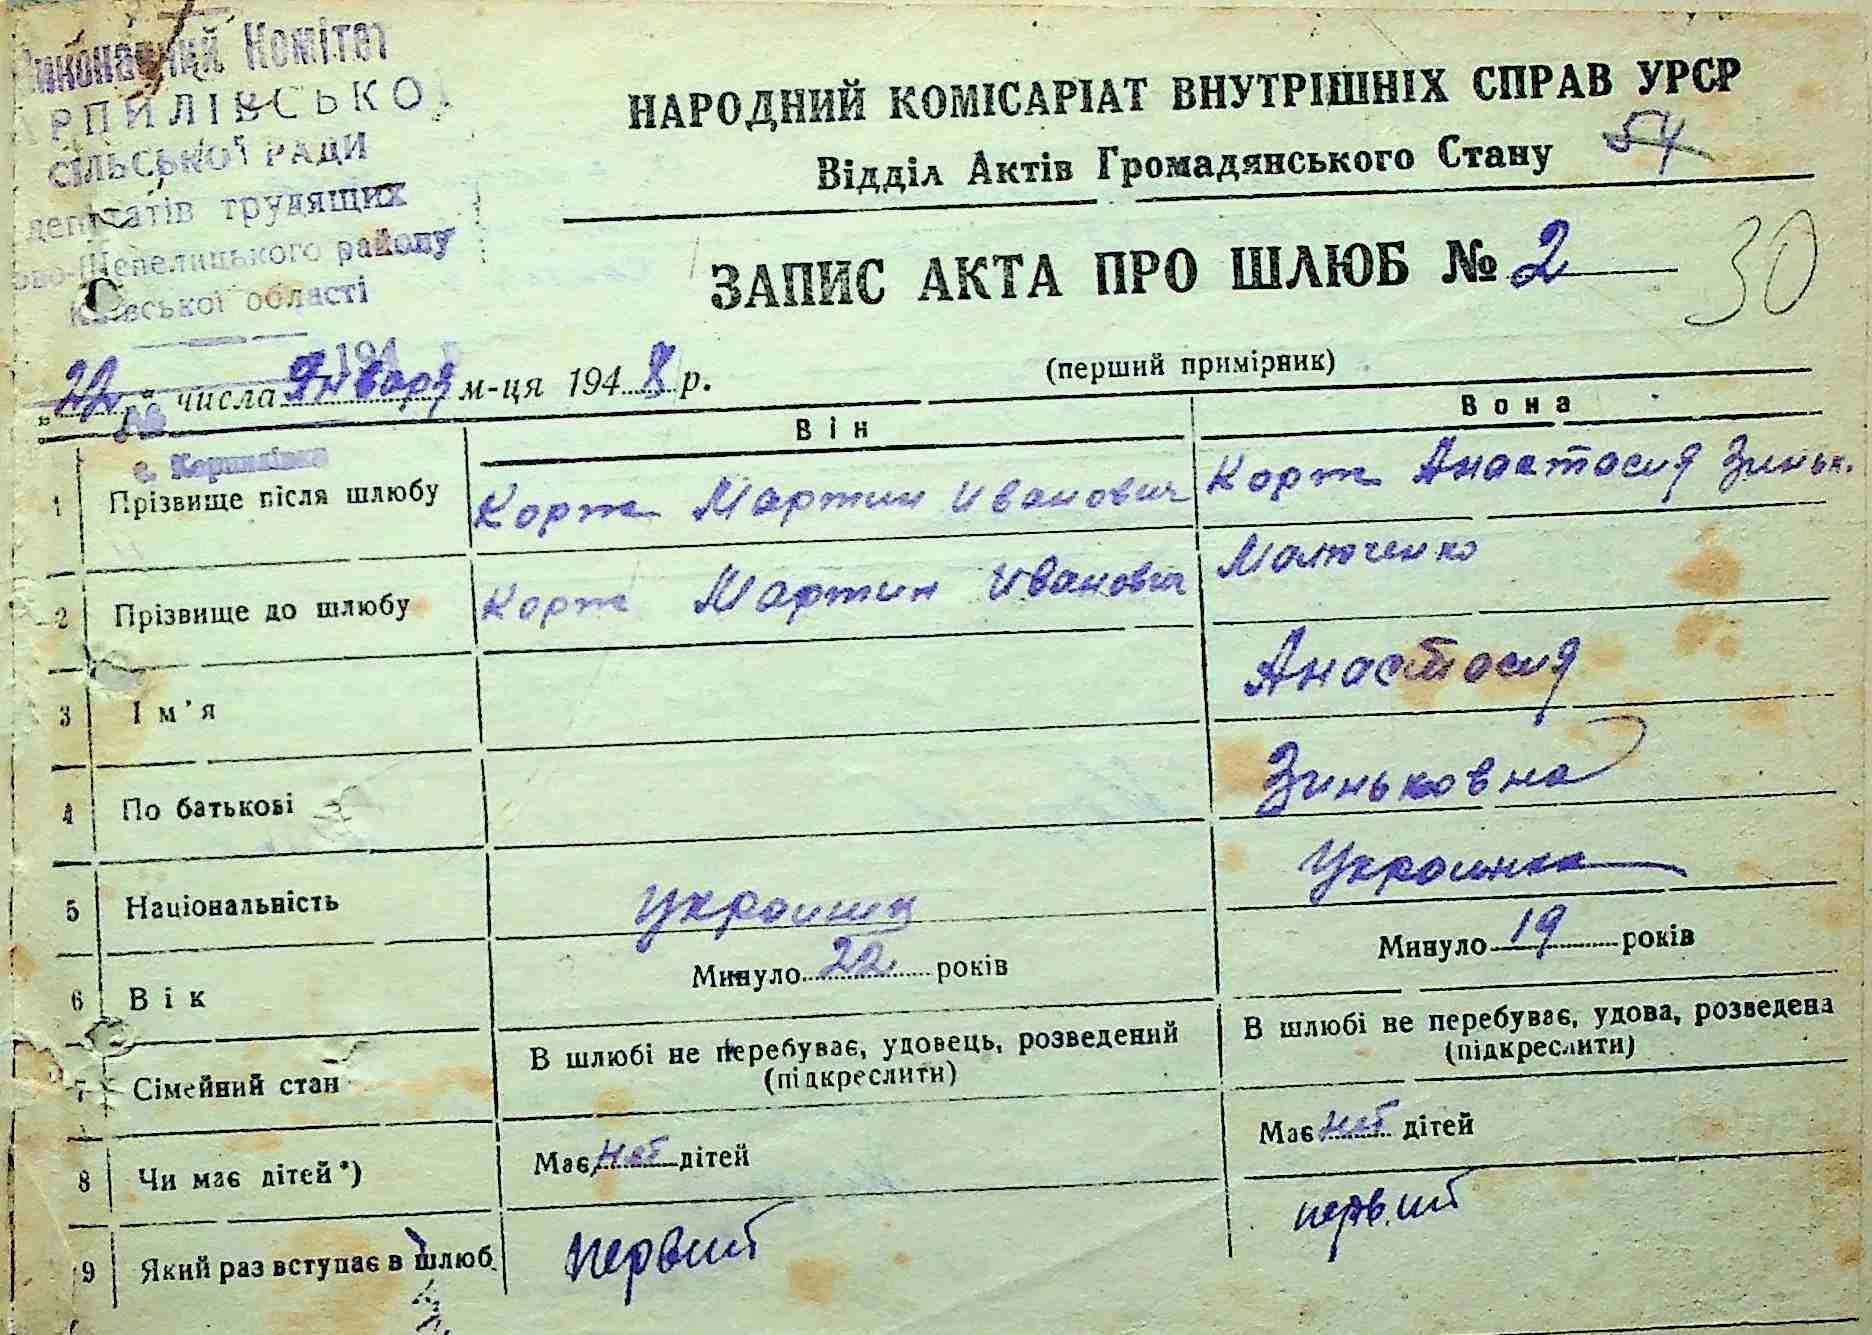 Виконавчий Комітет
КАРПИЛІВСЬКОЇ
СІЛЬСЬКОЇ РАДИ
депутатів трудящих
Ново-Шепелицького району
Київської області
194
с. Карпилівка
НАРОДНИЙ КОМІСАРІАТ ВНУТРІШНІХ СПРАВ УРСР
Відділ Актів Громадянського Стану 54
ЗАПИС АКТА ПРО ШЛЮБ № 2
30
(перший примірник)
„22" числа Января м-ця 1948 р.
Він Вона
1 Прізвище після шлюбу Корж Мартин Иванович Корж Анастасия Зиньк.
2 Прізвище до шлюбу Корж Мартин Иванович Малюченко
3 Ім'я Анастасия
4 По батькові Зиньковна
5 Національність Украинец Украинка
6 Вік Минуло 22 років Минуло 19 років
7 Сімейний стан В шлюбі не перебуває, удовець, розведений (підкреслити) В шлюбі не перебуває, удова, розведена (підкреслити)
8 Чи має дітей*) Має нет дітей Має нет дітей
9 Який раз вступає в шлюб первий первий